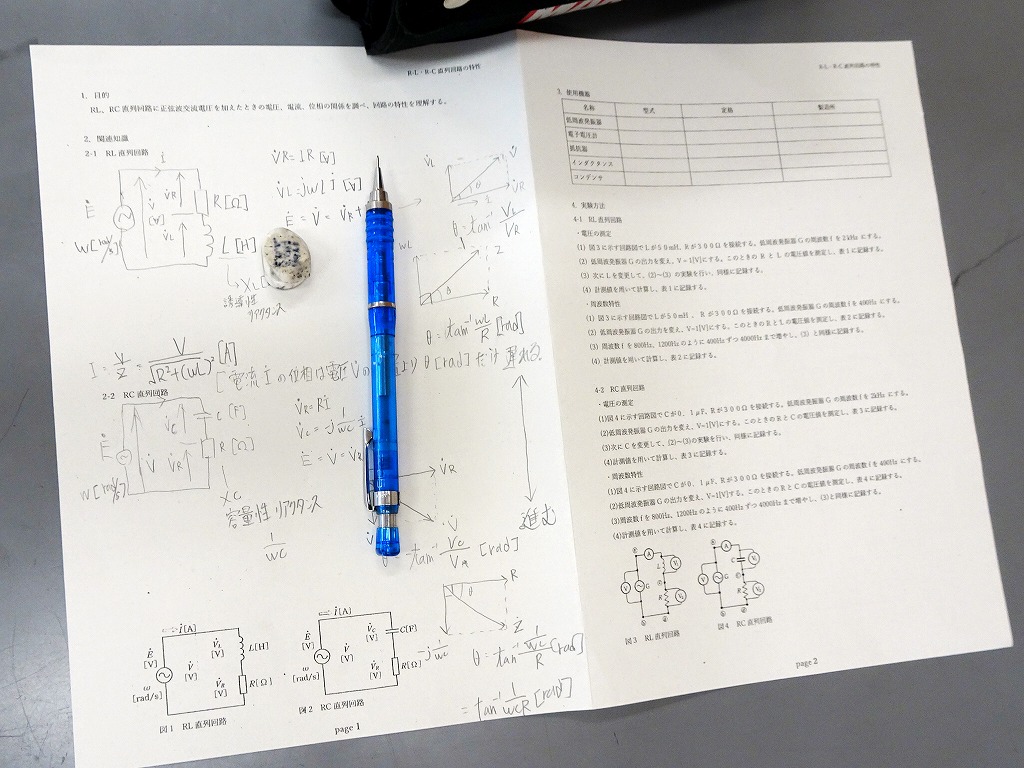 R-L・R-C 直列回路の特性
1. 目的
RL、RC 直列回路に正弦波交流電圧を加えたときの電圧、電流、位相の関係を調べ、回路の特性を理解する。
2. 関連知識
2-1 RL 直列回路
i
Ė
ω[rad/s]
V̇
[V]
V̇R
V̇L
R[Ω]
L[H]
↳XL
誘導性
リアクタンス
V̇R = İR [V]
V̇L = jωLİ [V]
Ė = V̇ = V̇R +
V̇L
V̇
θ
V̇R
i
θ = tan⁻¹ VL/VR
ωL
Z
θ
R
θ = tan⁻¹ ωL/R [rad]
I = V/Z = V/√R²+(ωL)² [A]
[電流 İ の位相は電圧 V̇ の より θ [rad] だけ 遅れる
2-2 RC 直列回路
Ė
ω[rad/s]
V̇
V̇C
V̇R
C [F]
R [Ω]
XC
容量性 リアクタンス
1/ωC
V̇R = Rİ
V̇C = -j 1/ωC İ
Ė = V̇ = V̇R
V̇R
V̇
進む
θ = tan⁻¹ VC/VR [rad]
R
θ
Ż
-j 1/ωC
θ = tan⁻¹ 1/ωC/R [rad]
= tan⁻¹ 1/ωCR [rad]
i[A]
Ė
[V]
ω
[rad/s]
V̇
[V]
V̇L
[V]
V̇R
[V]
L[H]
R[Ω]
図1 RL 直列回路
i[A]
Ė
[V]
ω
[rad/s]
V̇
[V]
V̇C
[V]
V̇R
[V]
C[F]
R[Ω]
図2 RC 直列回路
page 1
R-L・R-C 直列回路の特性
3. 使用機器
名称 型式 定格 製造所
低周波発振器
電子電圧計
抵抗器
インダクタンス
コンデンサ
4. 実験方法
4-1 RL 直列回路
・電圧の測定
(1) 図3に示す回路図でLが50mH、Rが300Ωを接続する。低周波発振器Gの周波数fを2kHzにする。
(2) 低周波発振器Gの出力を変え、V=1[V]にする。このときのRとLの電圧値を測定し、表1に記録する。
(3) 次にLを変更して、(2)~(3)の実験を行い、同様に記録する。
(4) 計測値を用いて計算し、表1に記録する。
・周波数特性
(1) 図3に示す回路図でLが50mH、Rが300Ωを接続する。低周波発振器Gの周波数fを400Hzにする。
(2) 低周波発振器Gの出力を変え、V=1[V]にする。このときのRとLの電圧値を測定し、表2に記録する。
(3) 周波数fを800Hz、1200Hzのように400Hzずつ4000Hzまで増やし、(3)と同様に記録する。
(4) 計測値を用いて計算し、表2に記録する。
4-2 RC 直列回路
・電圧の測定
(1)図4に示す回路図でCが0.1μF、Rが300Ωを接続する。低周波発振器Gの周波数fを2kHzにする。
(2)低周波発振器Gの出力を変え、V=1[V]にする。このときのRとCの電圧値を測定し、表3に記録する。
(3)次にCを変更して、(2)~(3)の実験を行い、同様に記録する。
(4)計測値を用いて計算し、表3に記録する。
・周波数特性
(1)図4に示す回路図でCが0.1μF、Rが300Ωを接続する。低周波発振器Gの周波数fを400Hzにする。
(2)低周波発振器Gの出力を変え、V=1[V]する。このときのRとCの電圧値を測定し、表4に記録する。
(3)周波数fを800Hz、1200Hzのように400Hzずつ4000Hzまで増やし、(3)と同様に記録する。
(4)計測値を用いて計算し、表4に記録する。
A
V
G
L
R
図3 RL 直列回路
A
V
G
C
R
図4 RC 直列回路
page 2